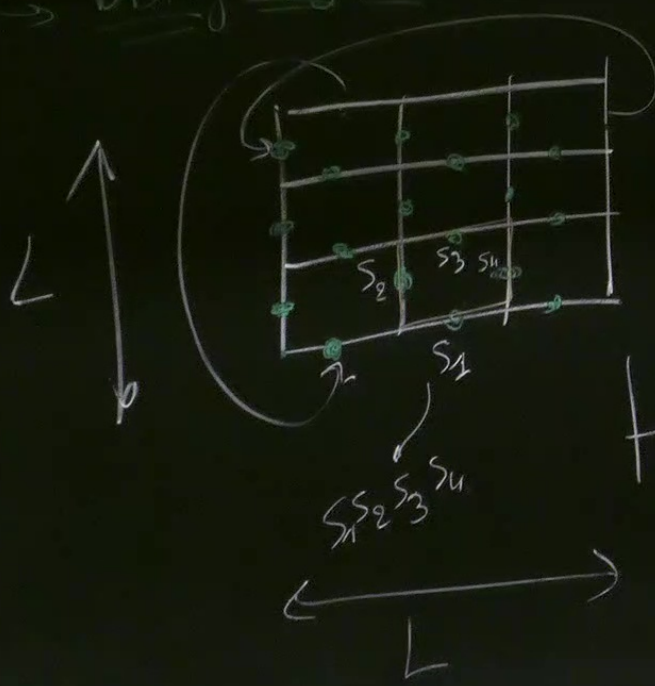 L
S2 S3 S4
S1
S1S2S3S4
L